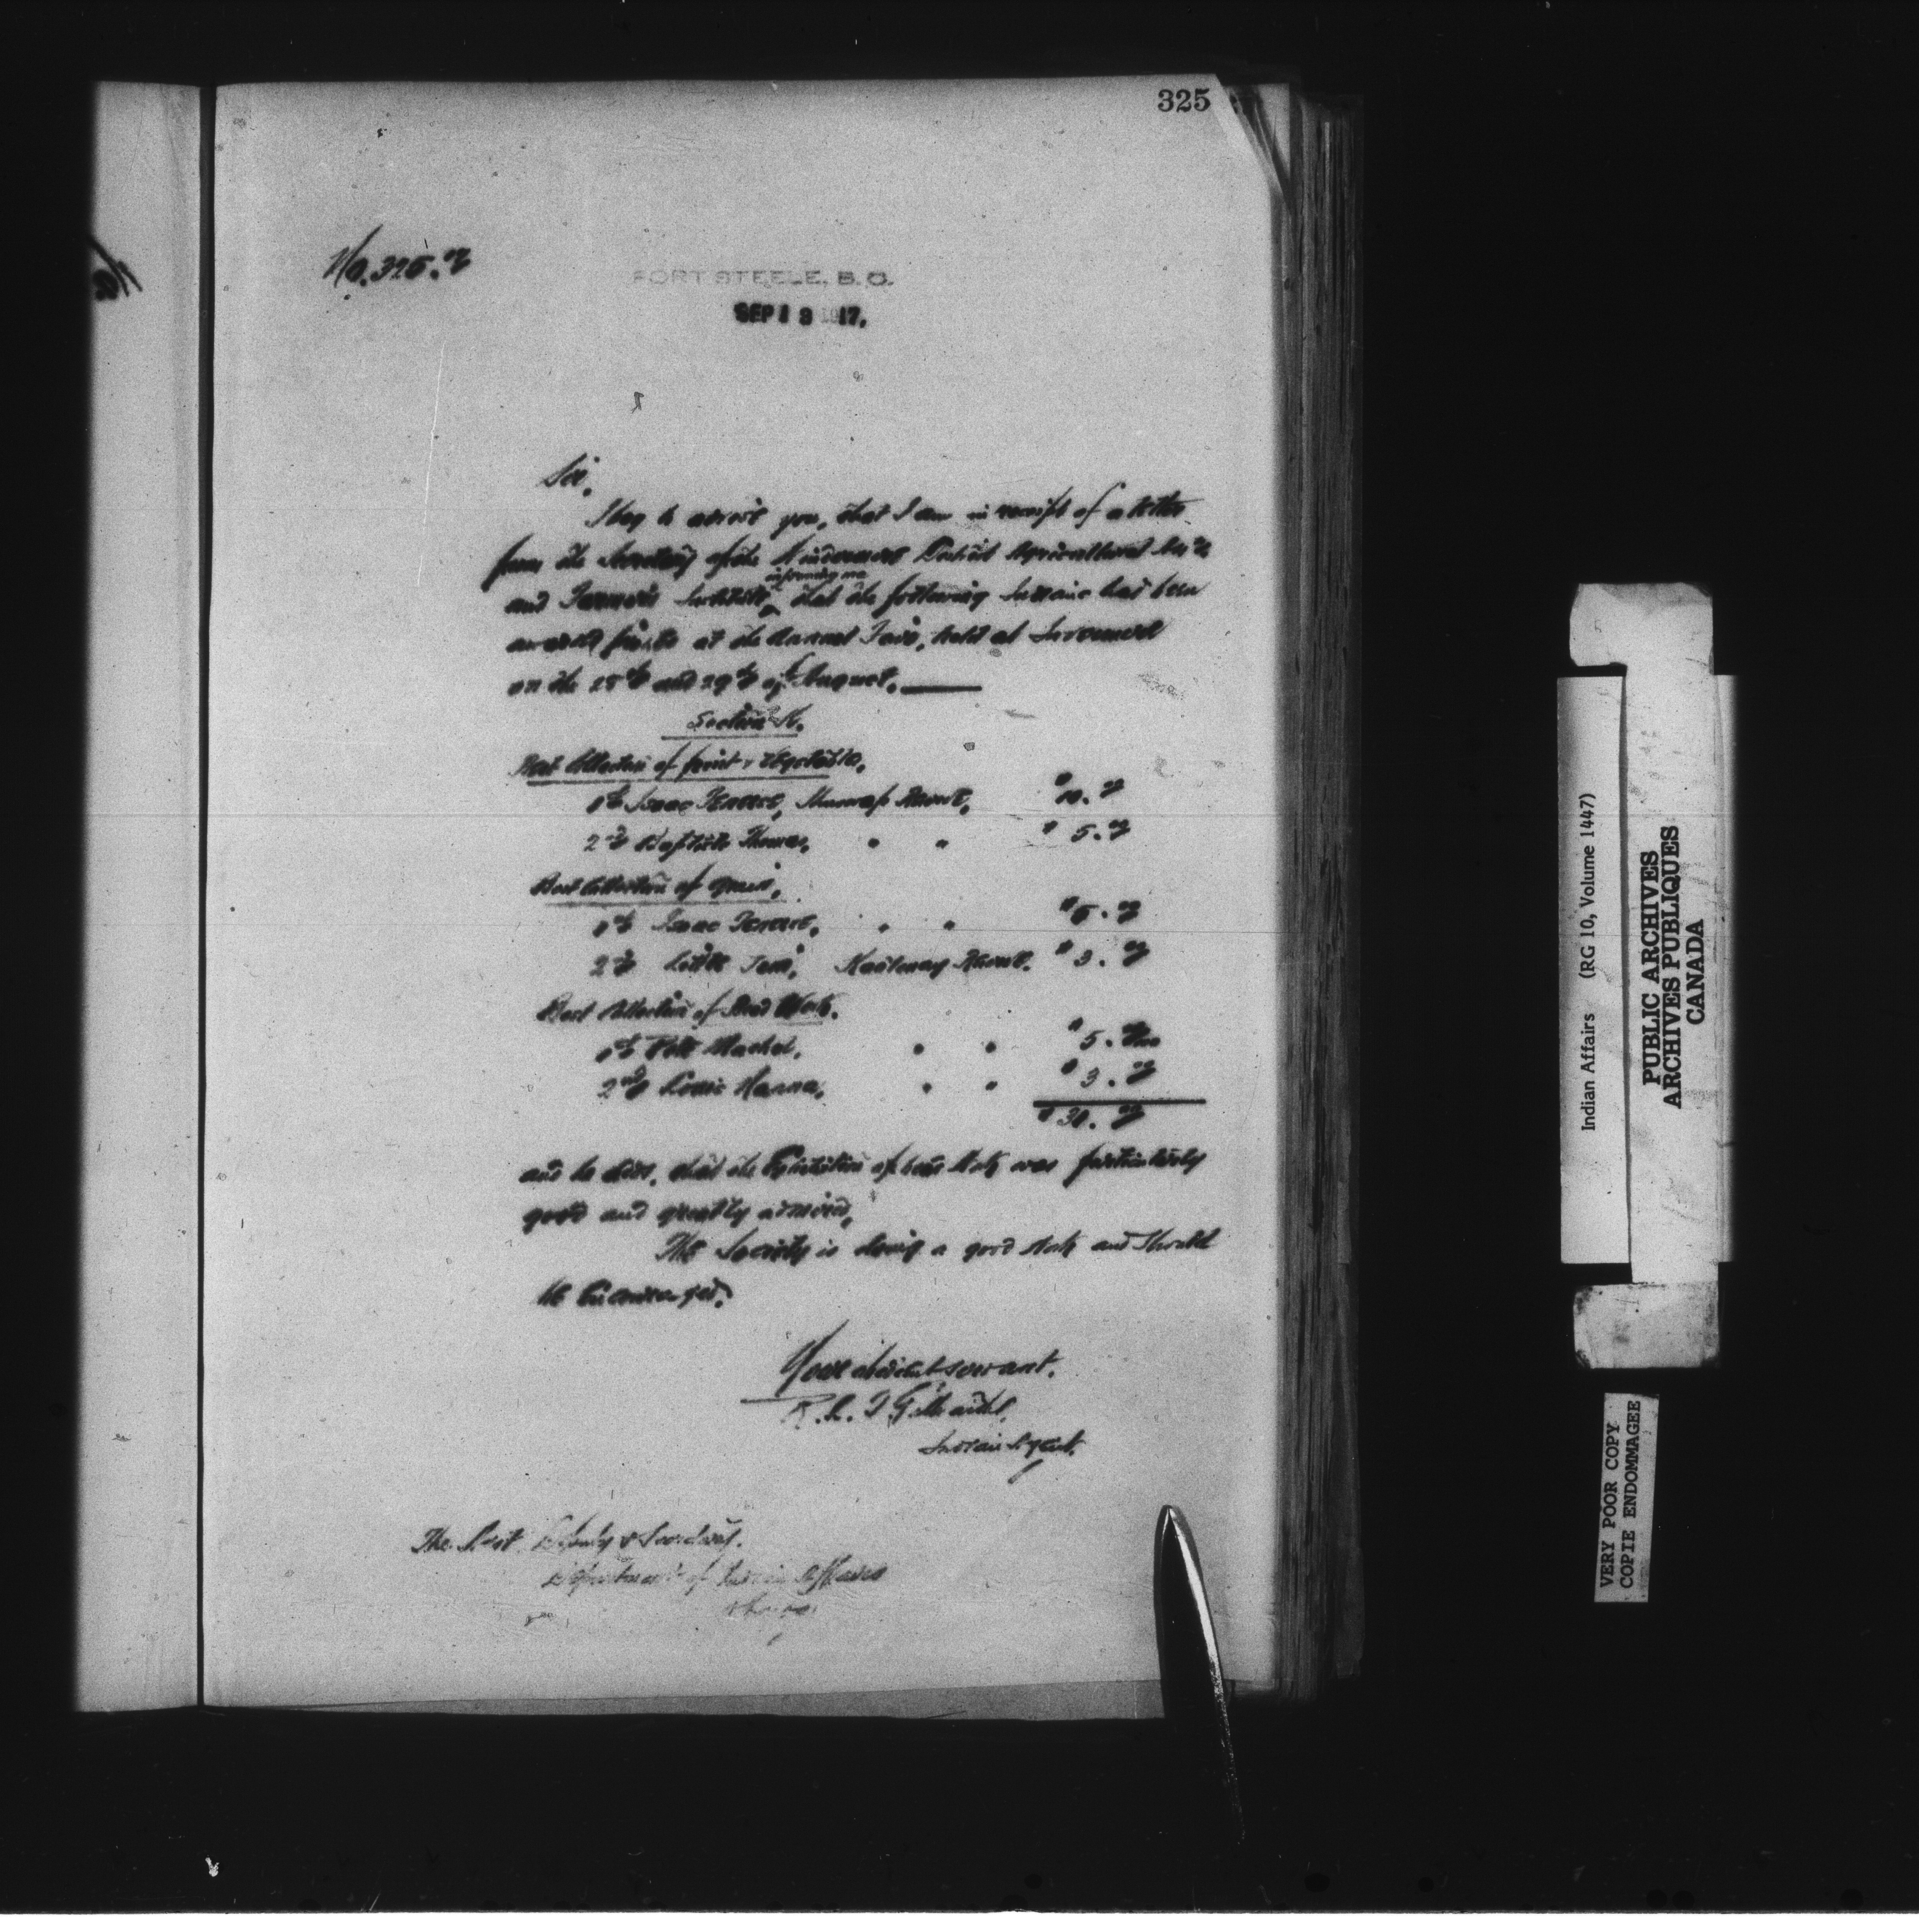 325
No. 325.
FORT STEELE, B.C.
SEP 13 1917.
Sir,
I beg to advise you, that I am in receipt of a letter
from the Secretary of the Windermere District Agricultural
informing me
and Farmers Institute, that the following Indians had been
awarded at the Annual Fair, held at Invermere
on the 28th and 29th of August.
Section
Best Collection of fruit & Vegetables.
1st Isaac , Shuswap Reserve, $10.
2nd Baptiste Thomas, " " $5.
Best Collection of grain,
1st Isaac , " " $5.
2nd Little , Kootenay Reserve. $3.
Best Collection of Bead Work.
1st , " " $5.
2nd Louie Hanna, " " $3.
$
and he adds, that the Exhibition of bead Work was particularly
good and greatly admired,
The Society is doing a good work and should
be Encouraged.
Your obedient servant.
R. L. T. Galbraith,
Indian Agent.
The Asst. Deputy & Secretary.
Department of Indian Affairs
Ottawa
Indian Affairs (RG 10, Volume 1447)
PUBLIC ARCHIVES
ARCHIVES PUBLIQUES
CANADA
VERY POOR COPY
COPIE ENDOMMAGEE